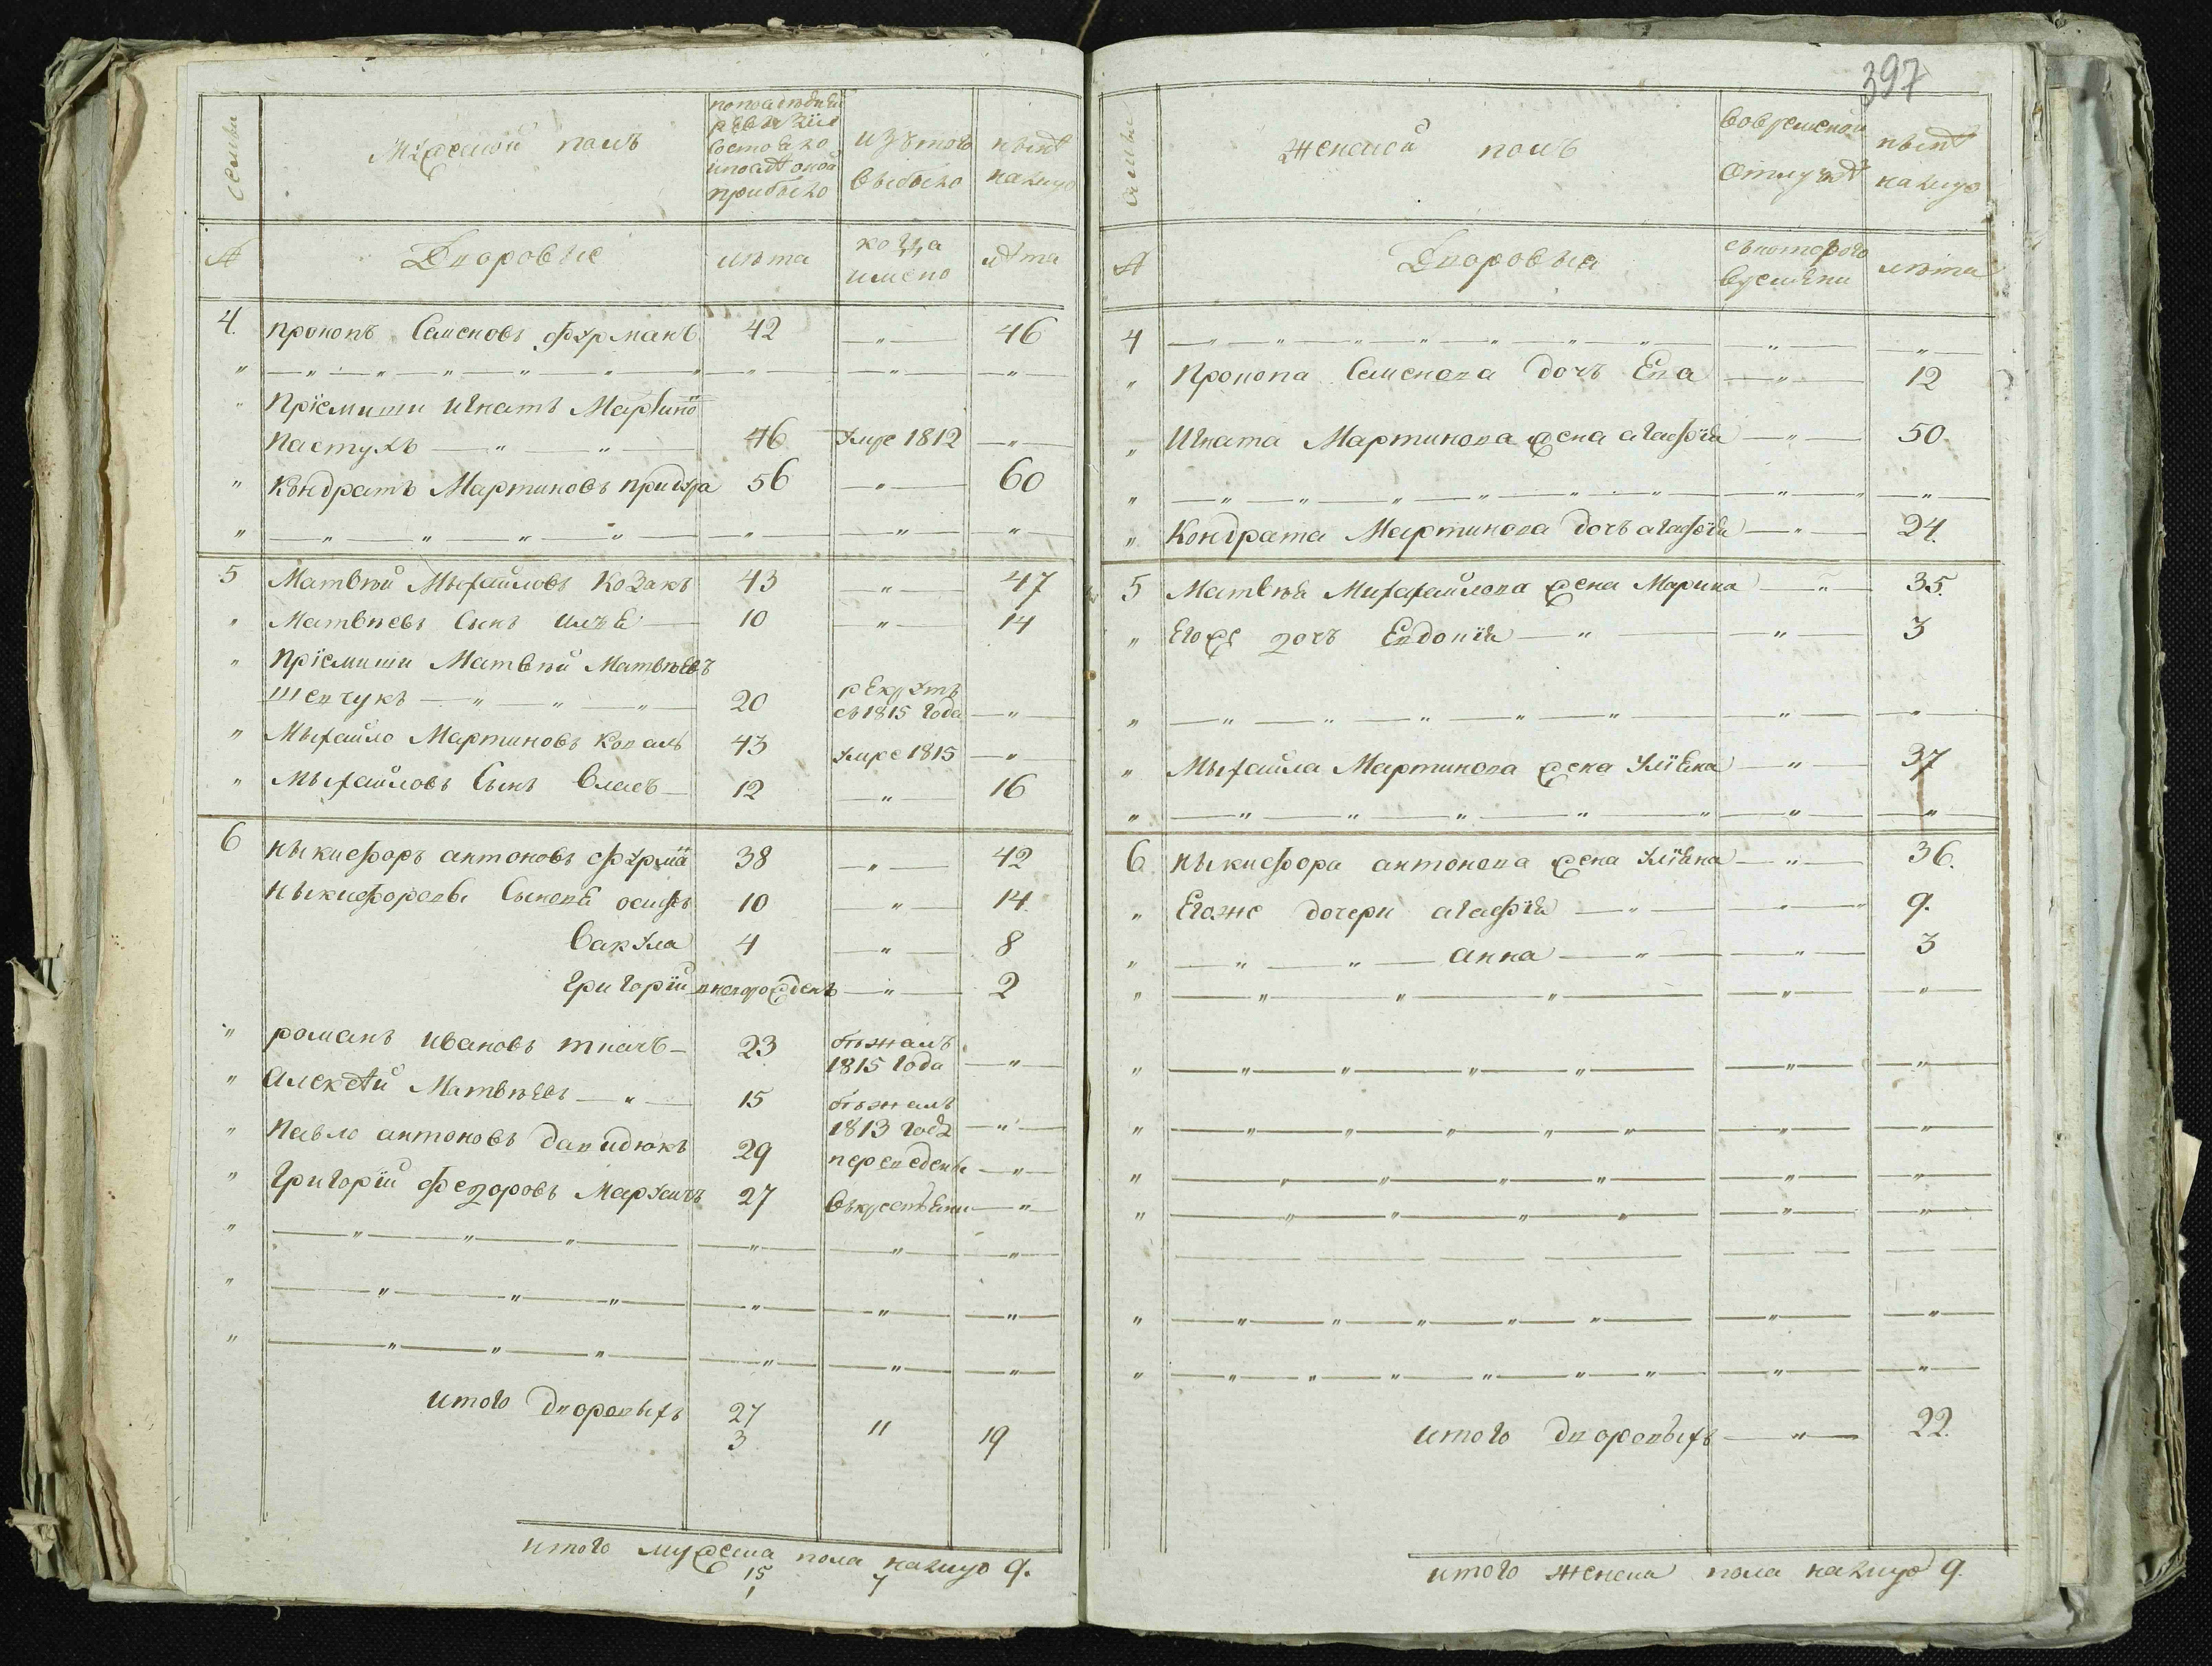 семьи
Мужеской полъ
по последней
ревизіи
состояло
и после оной
прибыло
изътого
выбыло
ныне
налицо
№
Дворовые
лѣта
когда
имено
лѣта
4. Прокопъ Семеновъ Фурманъ 42 — " — 46
" — " — " — " — " — " — " — " — " —
" Пріемиши Игнатъ Мартино
Пастухъ — " — " — 46 Умре 1812 — " —
" Кондратъ Мартиновъ 56 — " — 60
" — " — " — " — " — " — " — "
5 Матвѣй Мыхайловъ Козакъ 43 — " — 47
" Матвѣевъ Сынъ Илья — 10 — " — 14
" Пріемиши Матвѣй Матвѣевъ
Шевчукъ — " — " — " — 20 рекрутъ
съ 1815 года — " —
" Мыхайло Мартиновъ Коваль 43 Умре 1815 — " —
" Мыхайловъ Сынъ Власъ — 12 — " — 16
6 Ныкифоръ антоновъ Фурма 38 — " — 42
Ныкифоровы Сыновя осифъ 10 — " — 14
Вакула 4 — " — 8
Григорій вноворожденъ — " — 2
" романъ Ивановъ ткачъ — 23 бѣжалъ
1815 года — " —
" Алексѣй Матвѣевъ — " — 15 бѣжалъ
1813 года — " —
" Павло антоновъ Давидюкъ 29 переведены — " —
" Григорій Федоровъ 27 — " —
" — " — " — " — " — " — " —
" — " — " — " — " — " — " —
" — " — " — " — " — " — " —
итого Дворовыхъ 27 11 19
3
итого мужеска пола налицо 9.
15 7
1
397
семьи
Женской полъ
Вовременой
Отлучкѣ
нынѣ
налицо
№
Дворовыя
съкоторого
Времени
лѣта
4 — " — " — " — " — " — " — " — " — " —
" Прокопа Семенова дочъ Ева — " — 12
" Игната Мартинова жена агафія — " — 50
" — " — " — " — " — " — " — " — " —
" Кондрата Мартинова дочъ агафія — " — 24.
5 Матвѣя Михахайлова жена Марина — " — 35.
" Егоже дочъ Евдокія — " — " — 3
" — " — " — " — " — " — " — " —
" Мыхайла Мартинова жена Уліяна — " — 37
" — " — " — " — " — " — " — "
6 Ныкифора антонова жена Уліяна — " — 36.
" Егоже дочери агафія — " — " — 9.
" — " — " — анна — " — " — 3
" — " — " — " — " — " —
" — " — " — " — " — " — " —
" — " — " — " — " — " — " — " —
" — " — " — " — " — " — " —
" — " — " — " — " — " — " —
— — — — — —
" — " — " — " — " — " — " — " —
" — " — " — " — " — " — " — " — " —
итого Дворовыхъ — " — 22.
итого женска пола налицо 9.